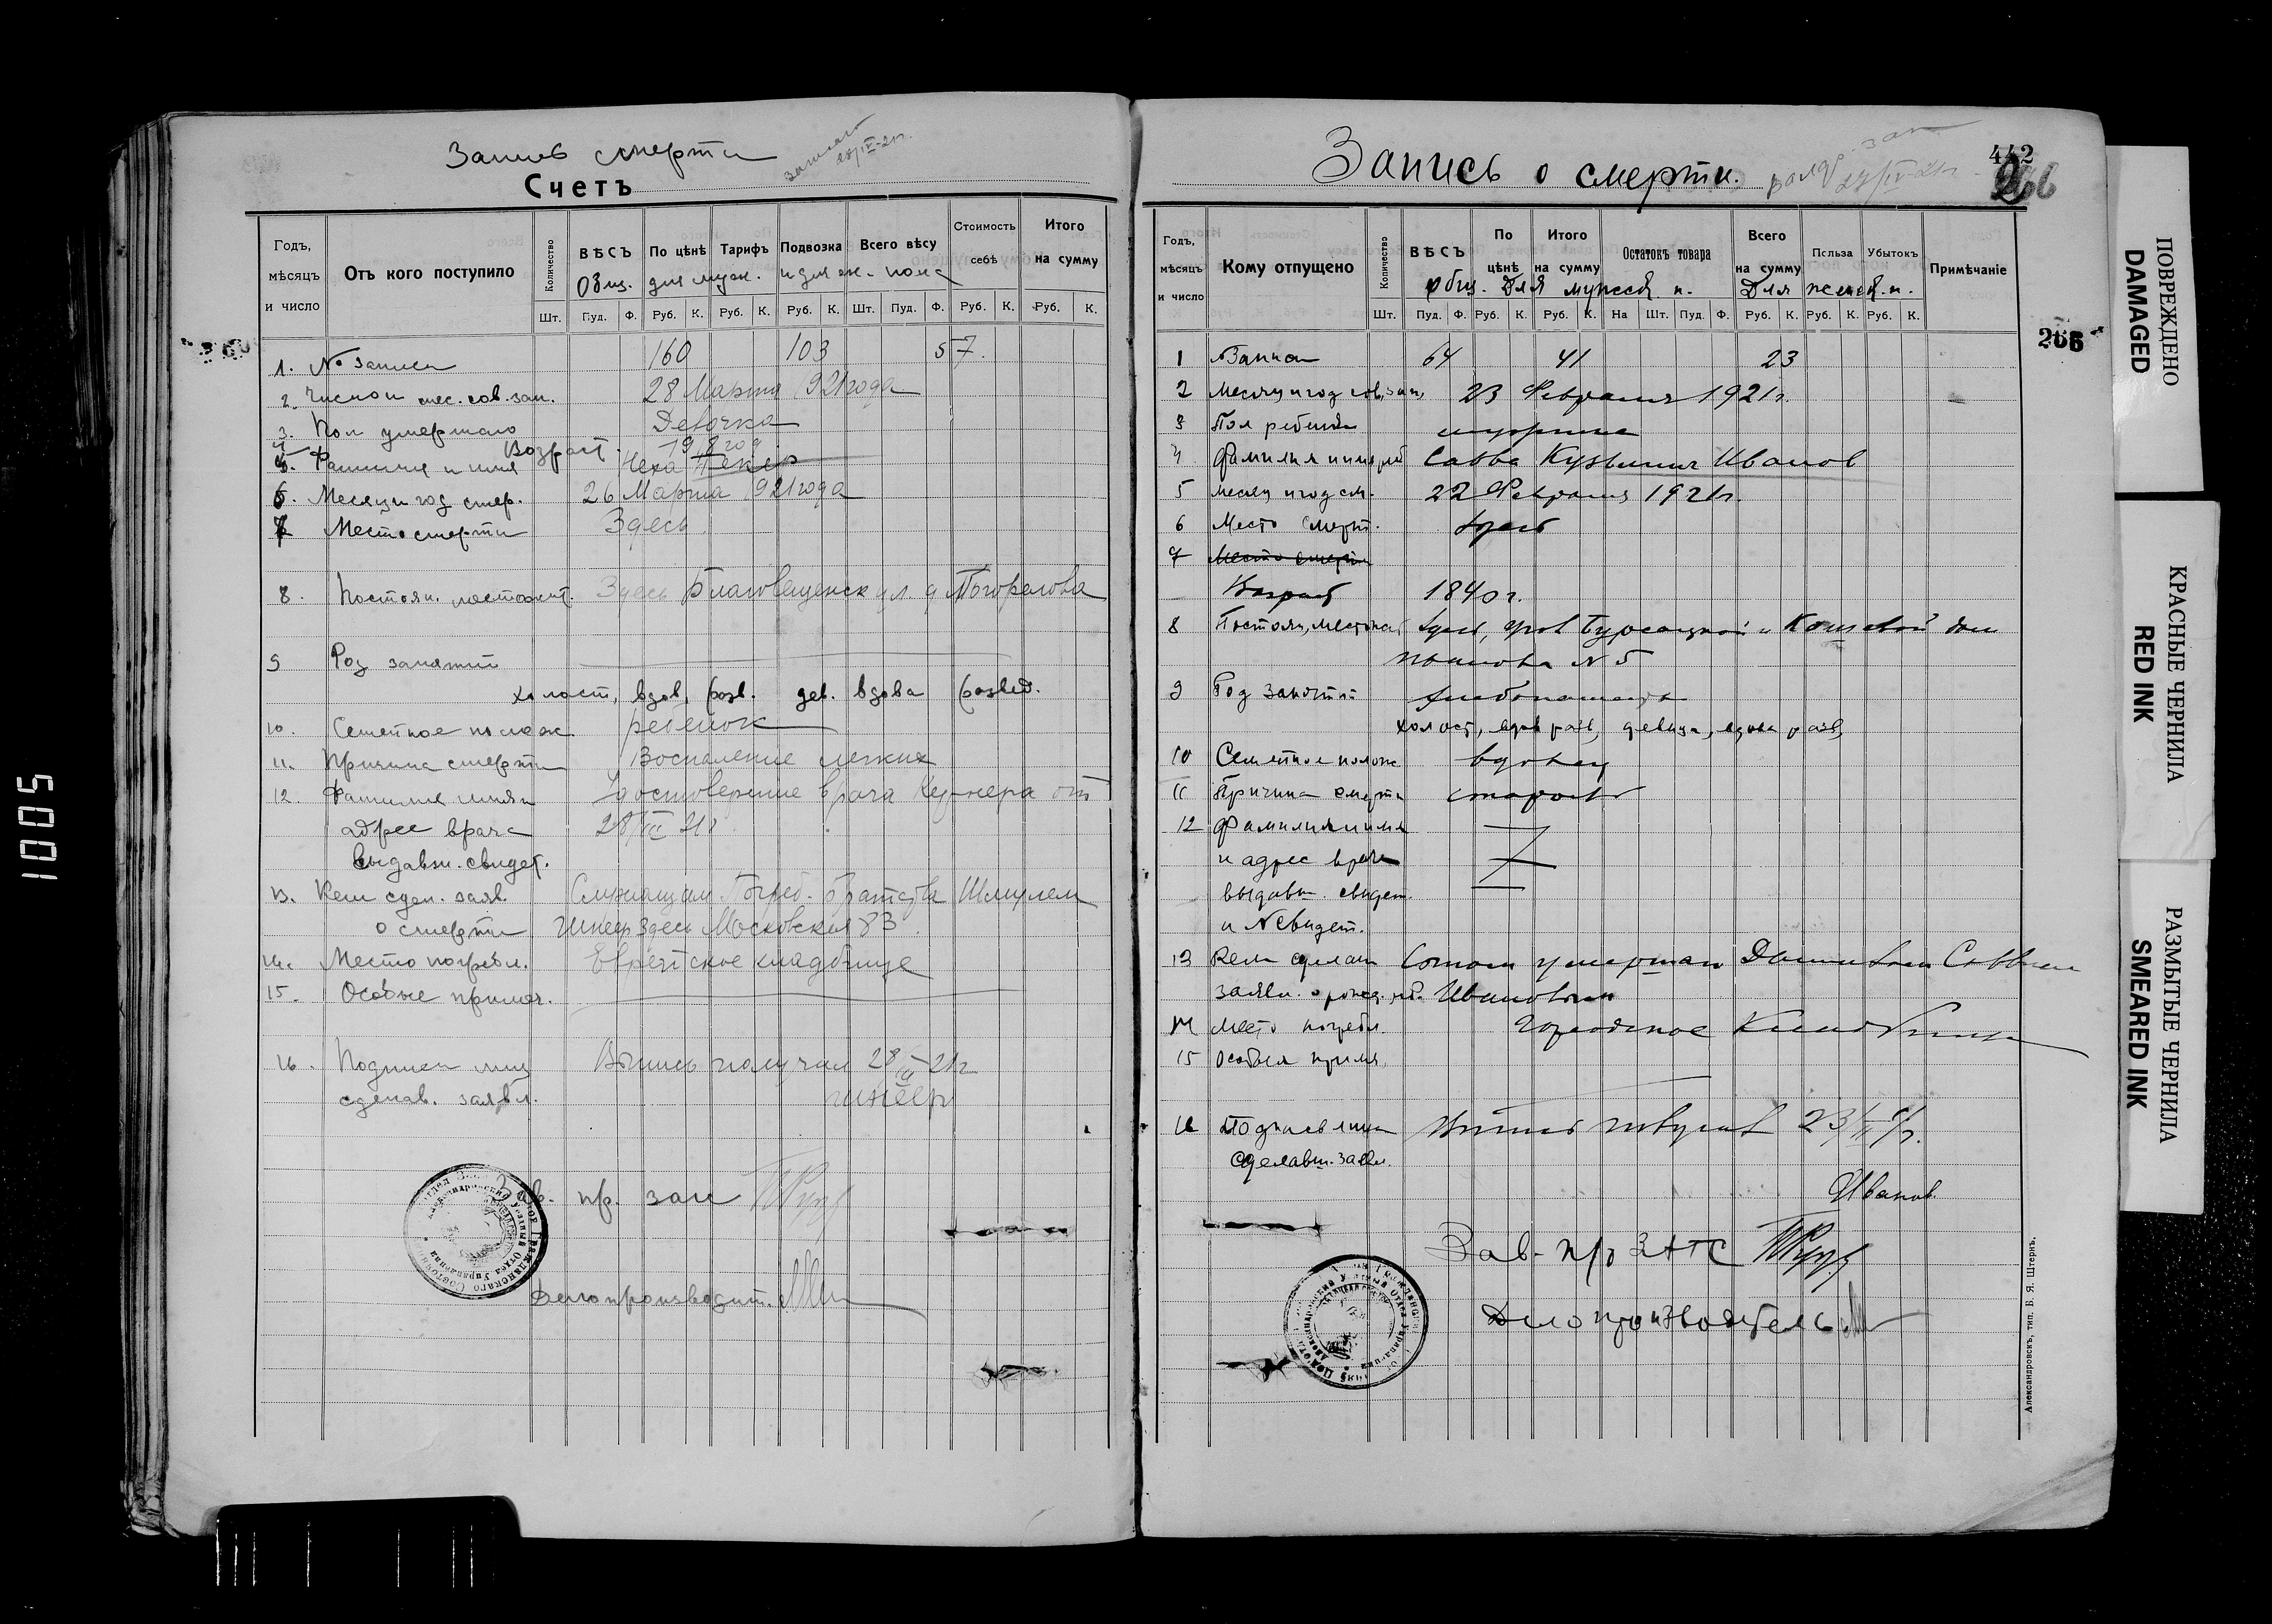 Запись смерти
Счетъ
Годъ, мѣсяцъ и число
Отъ кого поступило
Количество
ВѢСЪ
По цѣнѣ
Тарифъ
Подвозка
Всего вѣсу
Стоимость себѣ
Итого на сумму
Общ. для муж. и для ж. пола
Шт. Пуд. Ф. Руб. К. Руб. К. Руб. К. Шт. Пуд. Ф. Руб. К. Руб. К.
1. № записи 160 103 57.
2. Число и мес. сов. зап. 28 Марта 1921 года
3. Пол умершаго Девочка
4 Возраст. 19 год
5. Фамилия и имя Неха
6. Месяц и год смер. 26 Марта 1921 года
7 Место смерти Здесь
8. Постоян. местожит. Здесь Благовещенск ул. д Погорелова
9 Род занятий
холост, вдов, разв. дев. вдова развед.
10. Семейное полож ребенок
11. Причина смерти Воспаление легких
12. Фамилия имя и Удостоверение врача от
адрес врача 28/III 21г
выдавш. свидет.
13. Кем сдел. заяв. Служащим Погреб. братства Шмулем
о смерти Здесь Московская 83
14. Место погребл. Еврейское кладбище
15. Особые примеч.
16. Подписи лиц Выпись получил 28/III 21г
сделав. заявл.
Зав. пр. зап
Делопроизводит.
Запись о смерти.
442
266
Годъ, мѣсяцъ и число
Кому отпущено
Количество
ВѢСЪ
По цѣнѣ
Итого на сумму
Остатокъ товара
Всего на сумму
Польза
Убытокъ
Примѣчаніе
Общ. Для мужск. п. Для женск. п.
Шт. Пуд. Ф. Руб. К. Руб. К. На Шт. Пуд. Ф. Руб. К. Руб. К. Руб. К.
266
1 № Записи 64 41 23
2 Месяц и год сов. зап. 23 Февраля 1921 г.
3 Пол ребенка мужчина
4 Фамилия и имя реб Савва Кузьмич Иванов
5 месяц и год см. 22 Февраля 1921 г.
6 Место смерт. Здесь
7 Место смерти
Возраст 1840 г.
8 Постоян. местожит Здесь, Бурсацкой и Кошевой дом
Иванова № 5
9 Род занятий хлебопашец
холост, вдов разв, девица, вдова разв,
10 Семейное полож вдовец
11 Причина смерти старость
12 Фамилия и имя
и адрес врача
выдавш. свидет.
и № свидет.
13 Кем сделан Сыном умершаго Саввичем
заявл. о рожд. реб. Ивановым
14 место погребл. Городское Кладбище
15 особыя примя.
16 Подпись лица Выпись получил 23/II 21г.
сделавш. заявл.
Иванов
Зав. п/о ЗАГС
Делопроизводитель
Александровскъ, тип. Б. Я. Штернъ.
ПОВРЕЖДЕНО
DAMAGED
КРАСНЫЕ ЧЕРНИЛА
RED INK
РАЗМЫТЫЕ ЧЕРНИЛА
SMEARED INK
1005